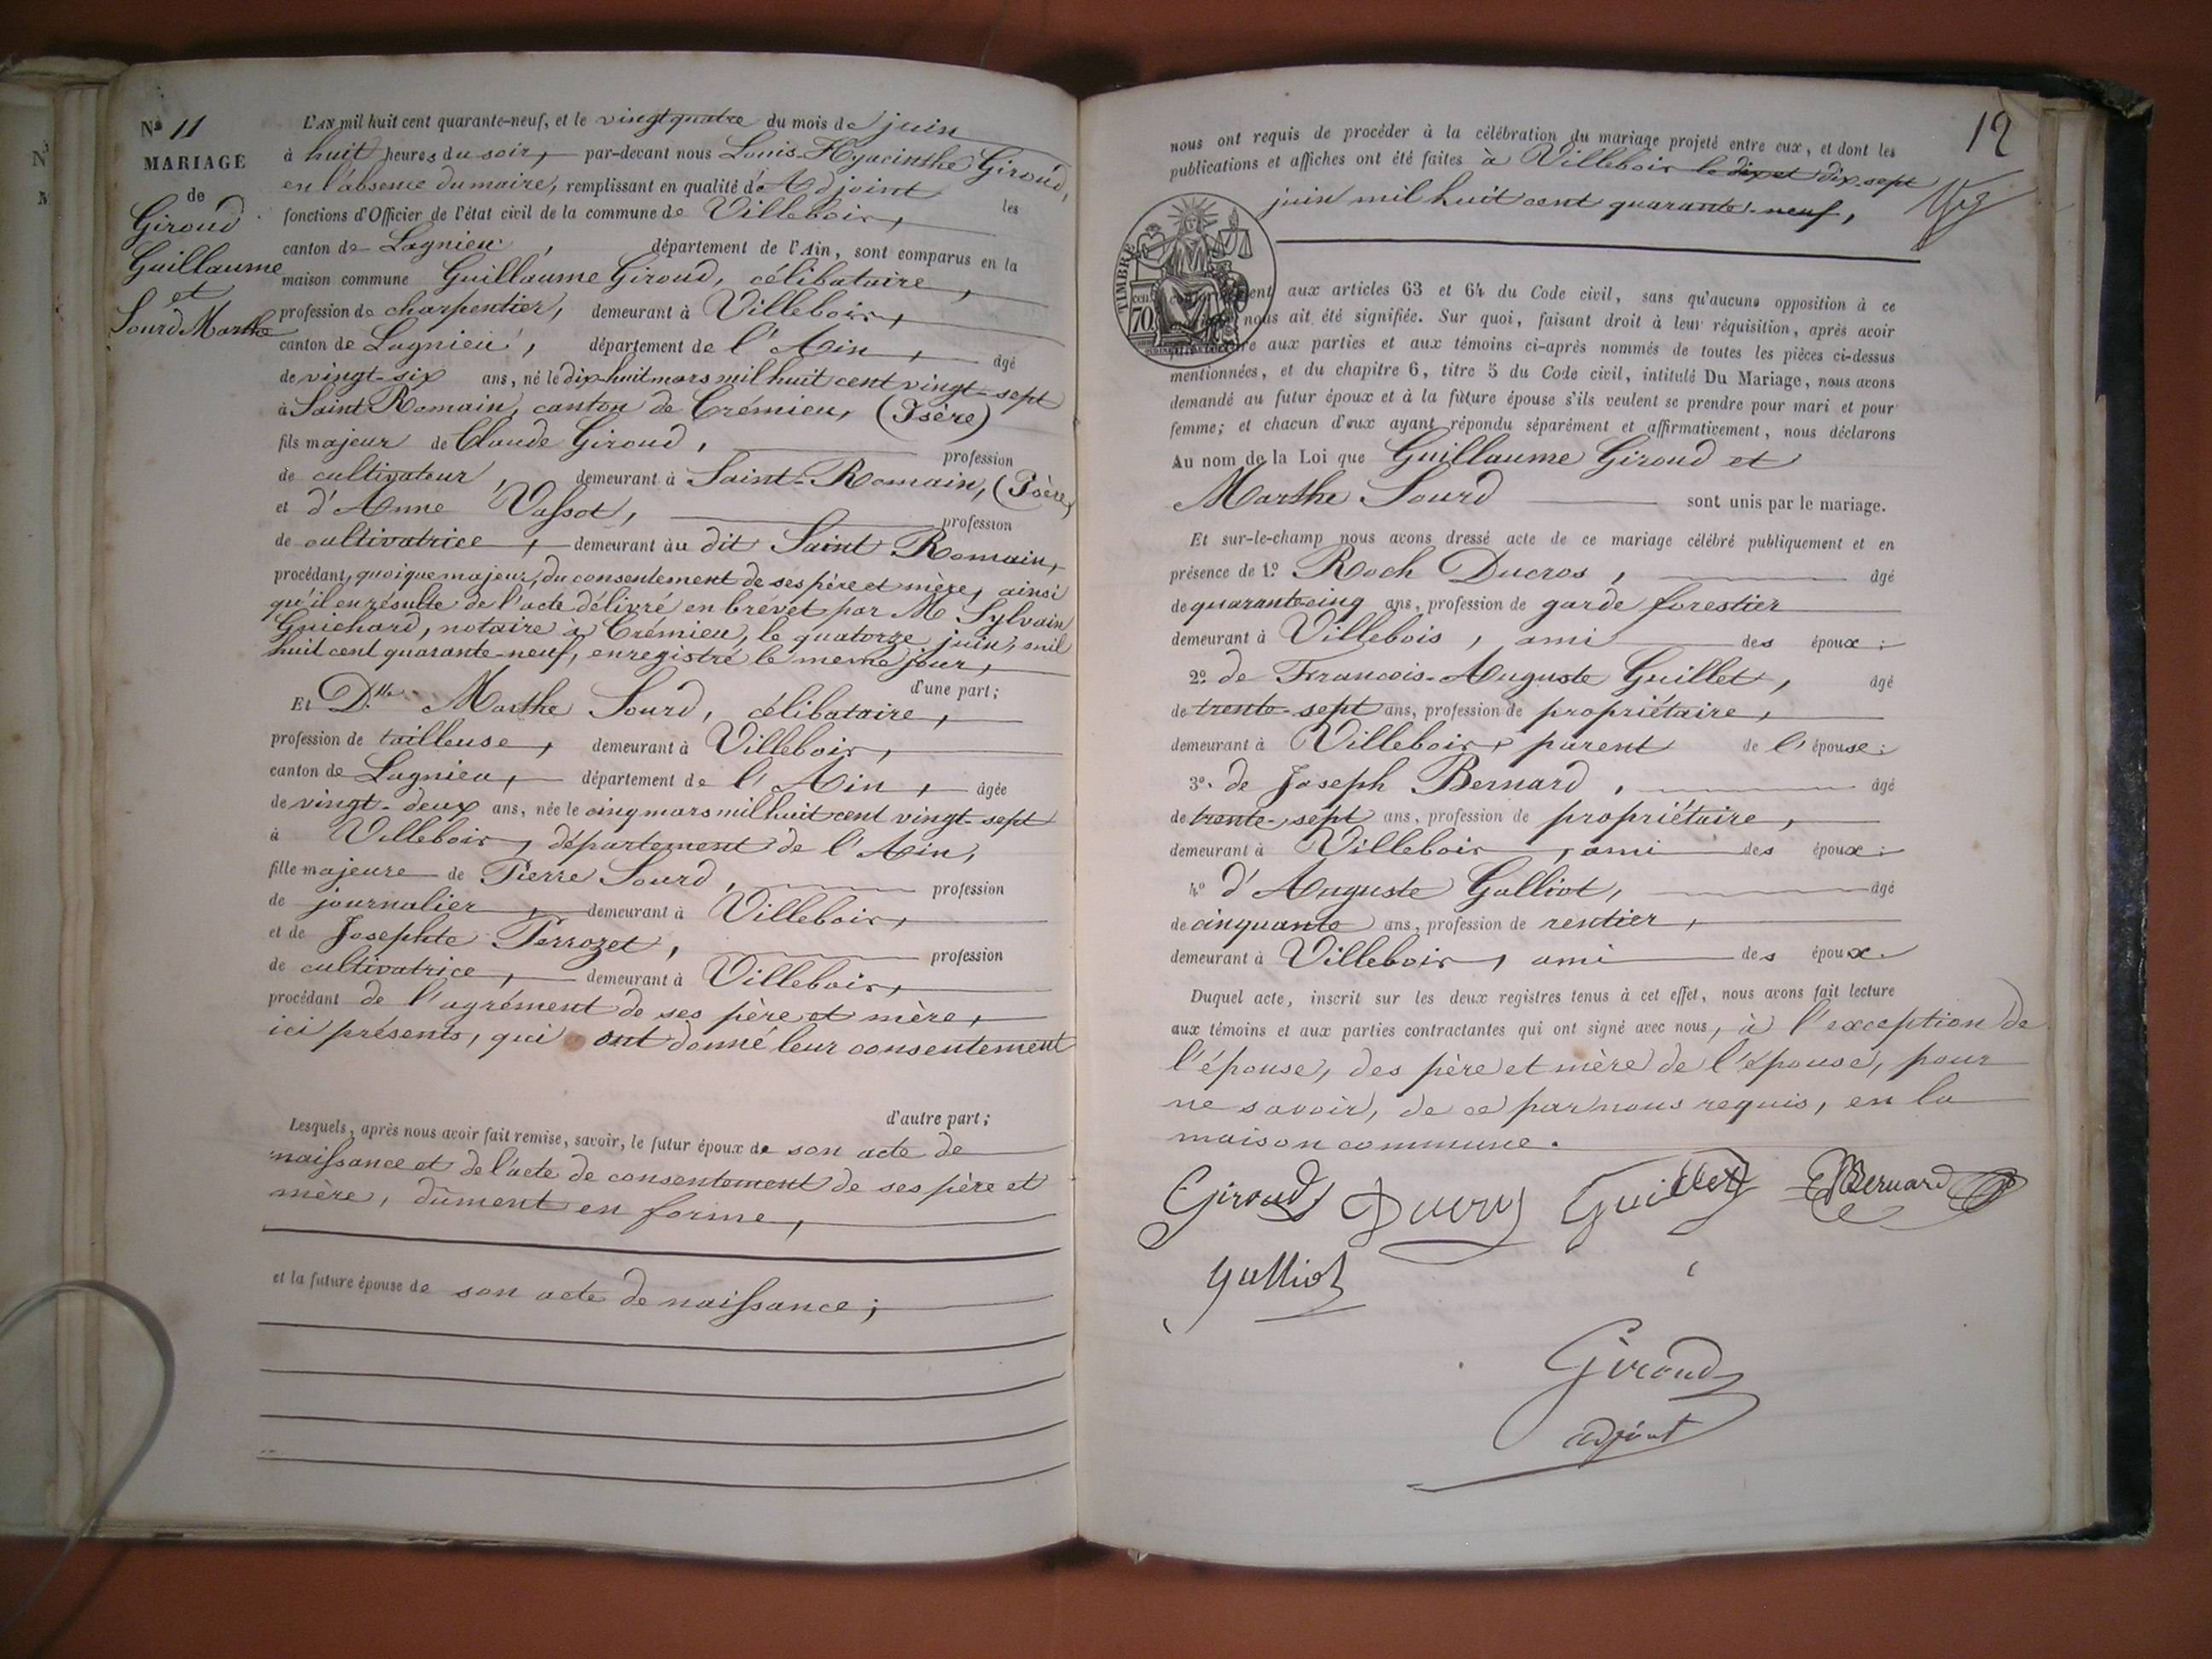 Nº 11
MARIAGE
de
Giroud
Guillaume
et
Sourd Marthe
L'AN mil huit cent quarante-neuf, et le vingt quatre du mois de juin
à huit heures du soir, par-devant nous Louis-Hyacinthe Giroud,
en l'absence du maire, remplissant en qualité d'Adjoint les
fonctions d'Officier de l'état civil de la commune de Villebois,
canton de Lagnieu, département de l'Ain, sont comparus en la
maison commune Guillaume Giroud, célibataire,
profession de charpentier, demeurant à Villebois,
canton de Lagnieu, département de l'Ain, âgé
de vingt-six ans, né le dix-huit mars mil huit cent vingt-sept
à Saint Romain, canton de Crémieu, (Isère)
fils majeur de Claude Giroud, profession
de cultivateur, demeurant à Saint-Romain, (Isère)
et d'Anne Vassot, profession
de cultivatrice, demeurant au dit Saint Romain,
procédant, quoique majeur, du consentement de ses père et mère, ainsi
qu'il en résulte de l'acte délivré en brevet par Me Sylvain
Guichard, notaire à Crémieu, le quatorze juin, mil
huit cent quarante-neuf, enregistré le même jour,
d'une part;
Et Dlle Marthe Sourd, célibataire,
profession de tailleuse, demeurant à Villebois,
canton de Lagnieu, département de l'Ain, âgée
de vingt-deux ans, née le cinq mars mil huit cent vingt-sept
à Villebois, département de l'Ain,
fille majeure de Pierre Sourd, profession
de journalier, demeurant à Villebois,
et de Josephte Perrozet, profession
de cultivatrice, demeurant à Villebois,
procédant de l'agrément de ses père et mère,
ici présents, qui ont donné leur consentement
d'autre part;
Lesquels, après nous avoir fait remise, savoir, le futur époux de son acte de
naissance et de l'acte de consentement de ses père et
mère, dûment en forme,
et la future épouse de son acte de naissance;
12
nous ont requis de procéder à la célébration du mariage projeté entre eux, et dont les
publications et affiches ont été faites à Villebois le dix et dix-sept
juin mil huit cent quarante-neuf,
TIMBRE
70
aux articles 63 et 64 du Code civil, sans qu'aucune opposition à ce
nous ait été signifiée. Sur quoi, faisant droit à leur réquisition, après avoir
aux parties et aux témoins ci-après nommés de toutes les pièces ci-dessus
mentionnées, et du chapitre 6, titre 5 du Code civil, intitulé Du Mariage, nous avons
demandé au futur époux et à la future épouse s'ils veulent se prendre pour mari et pour
femme; et chacun d'eux ayant répondu séparément et affirmativement, nous déclarons
Au nom de la Loi que Guillaume Giroud et
Marthe Sourd sont unis par le mariage.
Et sur-le-champ nous avons dressé acte de ce mariage célébré publiquement et en
présence de 1º Roch Ducros, âgé
de quarante cinq ans, profession de garde forestier
demeurant à Villebois, ami des époux;
2º de Francois-Auguste Guillet, âgé
de trente-sept ans, profession de propriétaire,
demeurant à Villebois, parent de l'épouse;
3º de Joseph Bernard, âgé
de trente-sept ans, profession de propriétaire,
demeurant à Villebois, ami des époux;
4º d'Auguste Galliot, âgé
de cinquante ans, profession de rentier,
demeurant à Villebois, ami des époux.
Duquel acte, inscrit sur les deux registres tenus à cet effet, nous avons fait lecture
aux témoins et aux parties contractantes qui ont signé avec nous, à l'exception de
l'épouse, des père et mère de l'épouse, pour
ne savoir, de ce par nous requis, en la
maison commune.
Giroud Ducros Guillet Bernard
Galliot
Giroud
adjoint